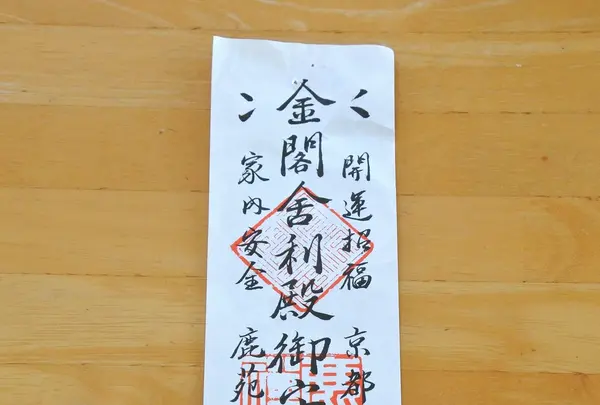 開運招福 京都
金閣舎利殿御
家内安全 鹿苑